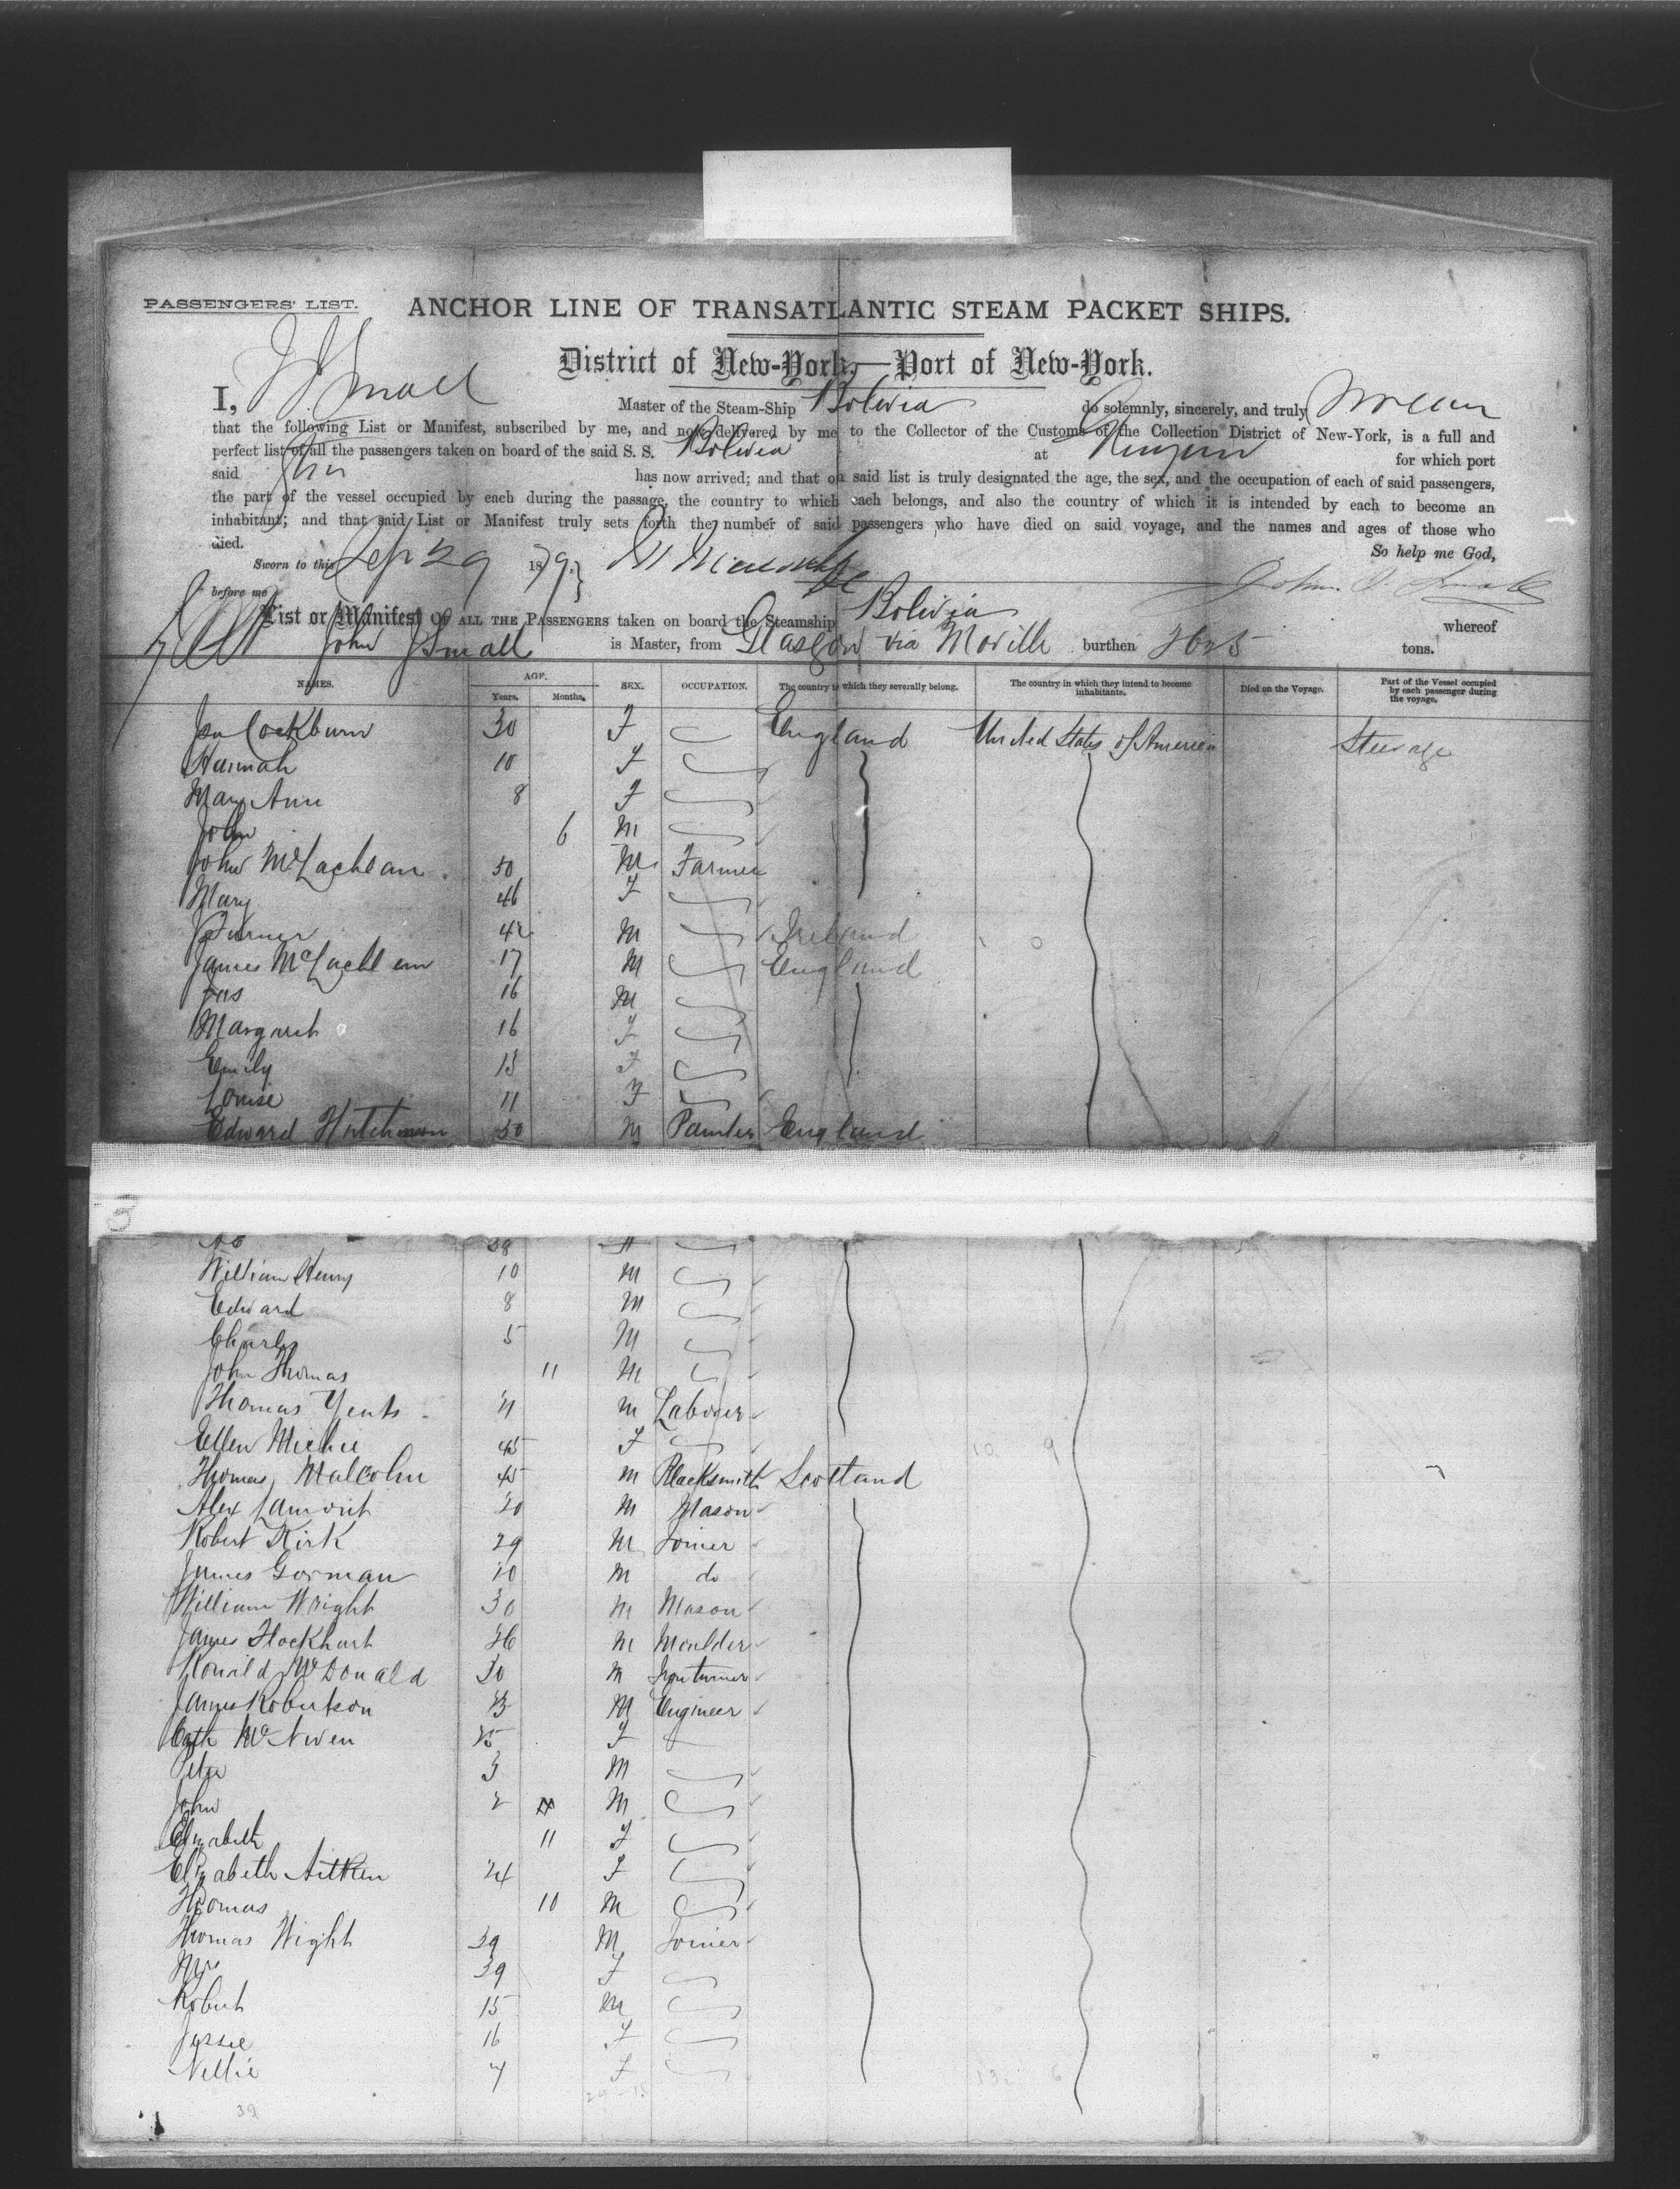 PASSENGERS' LIST. ANCHOR LINE OF TRANSATLANTIC STEAM PACKET SHIPS.
District of New-York,—Port of New-York.
I, J J Small Master of the Steam-Ship Bolivia do solemnly, sincerely, and truly
that the following List or Manifest, subscribed by me, and now delivered by me to the Collector of the Customs of the Collection District of New-York, is a full and
perfect list of all the passengers taken on board of the said S. S. Bolivia at for which port
said has now arrived; and that on said list is truly designated the age, the sex, and the occupation of each of said passengers,
the part of the vessel occupied by each during the passage, the country to which each belongs, and also the country of which it is intended by each to become an
inhabitant; and that said List or Manifest truly sets forth the number of said passengers who have died on said voyage, and the names and ages of those who
died. So help me God,
Sworn to this Sep 29 1879. John J. Small
before me
List or Manifest OF ALL THE PASSENGERS taken on board the Steamship Bolivia whereof
John J Small is Master, from Glasgow via Moville burthen tons.
NAMES. AGE. Years. Months. SEX. OCCUPATION. The country to which they severally belong. The country in which they intend to become inhabitants. Died on the Voyage. Part of the Vessel occupied by each passenger during the voyage.
Cockburn 30 F England United States of America Steerage
Hannah 10 F
Mary Ann 8 F
John 6 M
John McLachlan 50 M Farmer
Mary 46 F
Turner 42 M Ireland
James McLachlan 17 M England
Jas 16 M
Margaret 16 F
Emily 13 F
Louise 11 F
Edward Hutchinson 50 M Painter England
38
William Henry 10 M
Edward 8 M
Charles 5 M
John Thomas 11 M
Thomas M Labourer
Ellen Michie 45 F
Thomas Malcolm 45 M Blacksmith Scotland
Alex Lamont 20 M Mason
Robert Kirk 29 M Joiner
James Gorman M do
William Wright 30 M Mason
James Flockhart 26 M Moulder
Ronald McDonald 30 M Iron turner
James Robertson M Engineer
Cath McNiven F
Peter 3 M
John 2 M
Elizabeth 11 F
Elizabeth Aitken 24 F
Thomas 10 M
Thomas Wight 39 M Joiner
Mrs 39 F
Robert 15 M
Jessie 16 F
Nellie 7 F
39